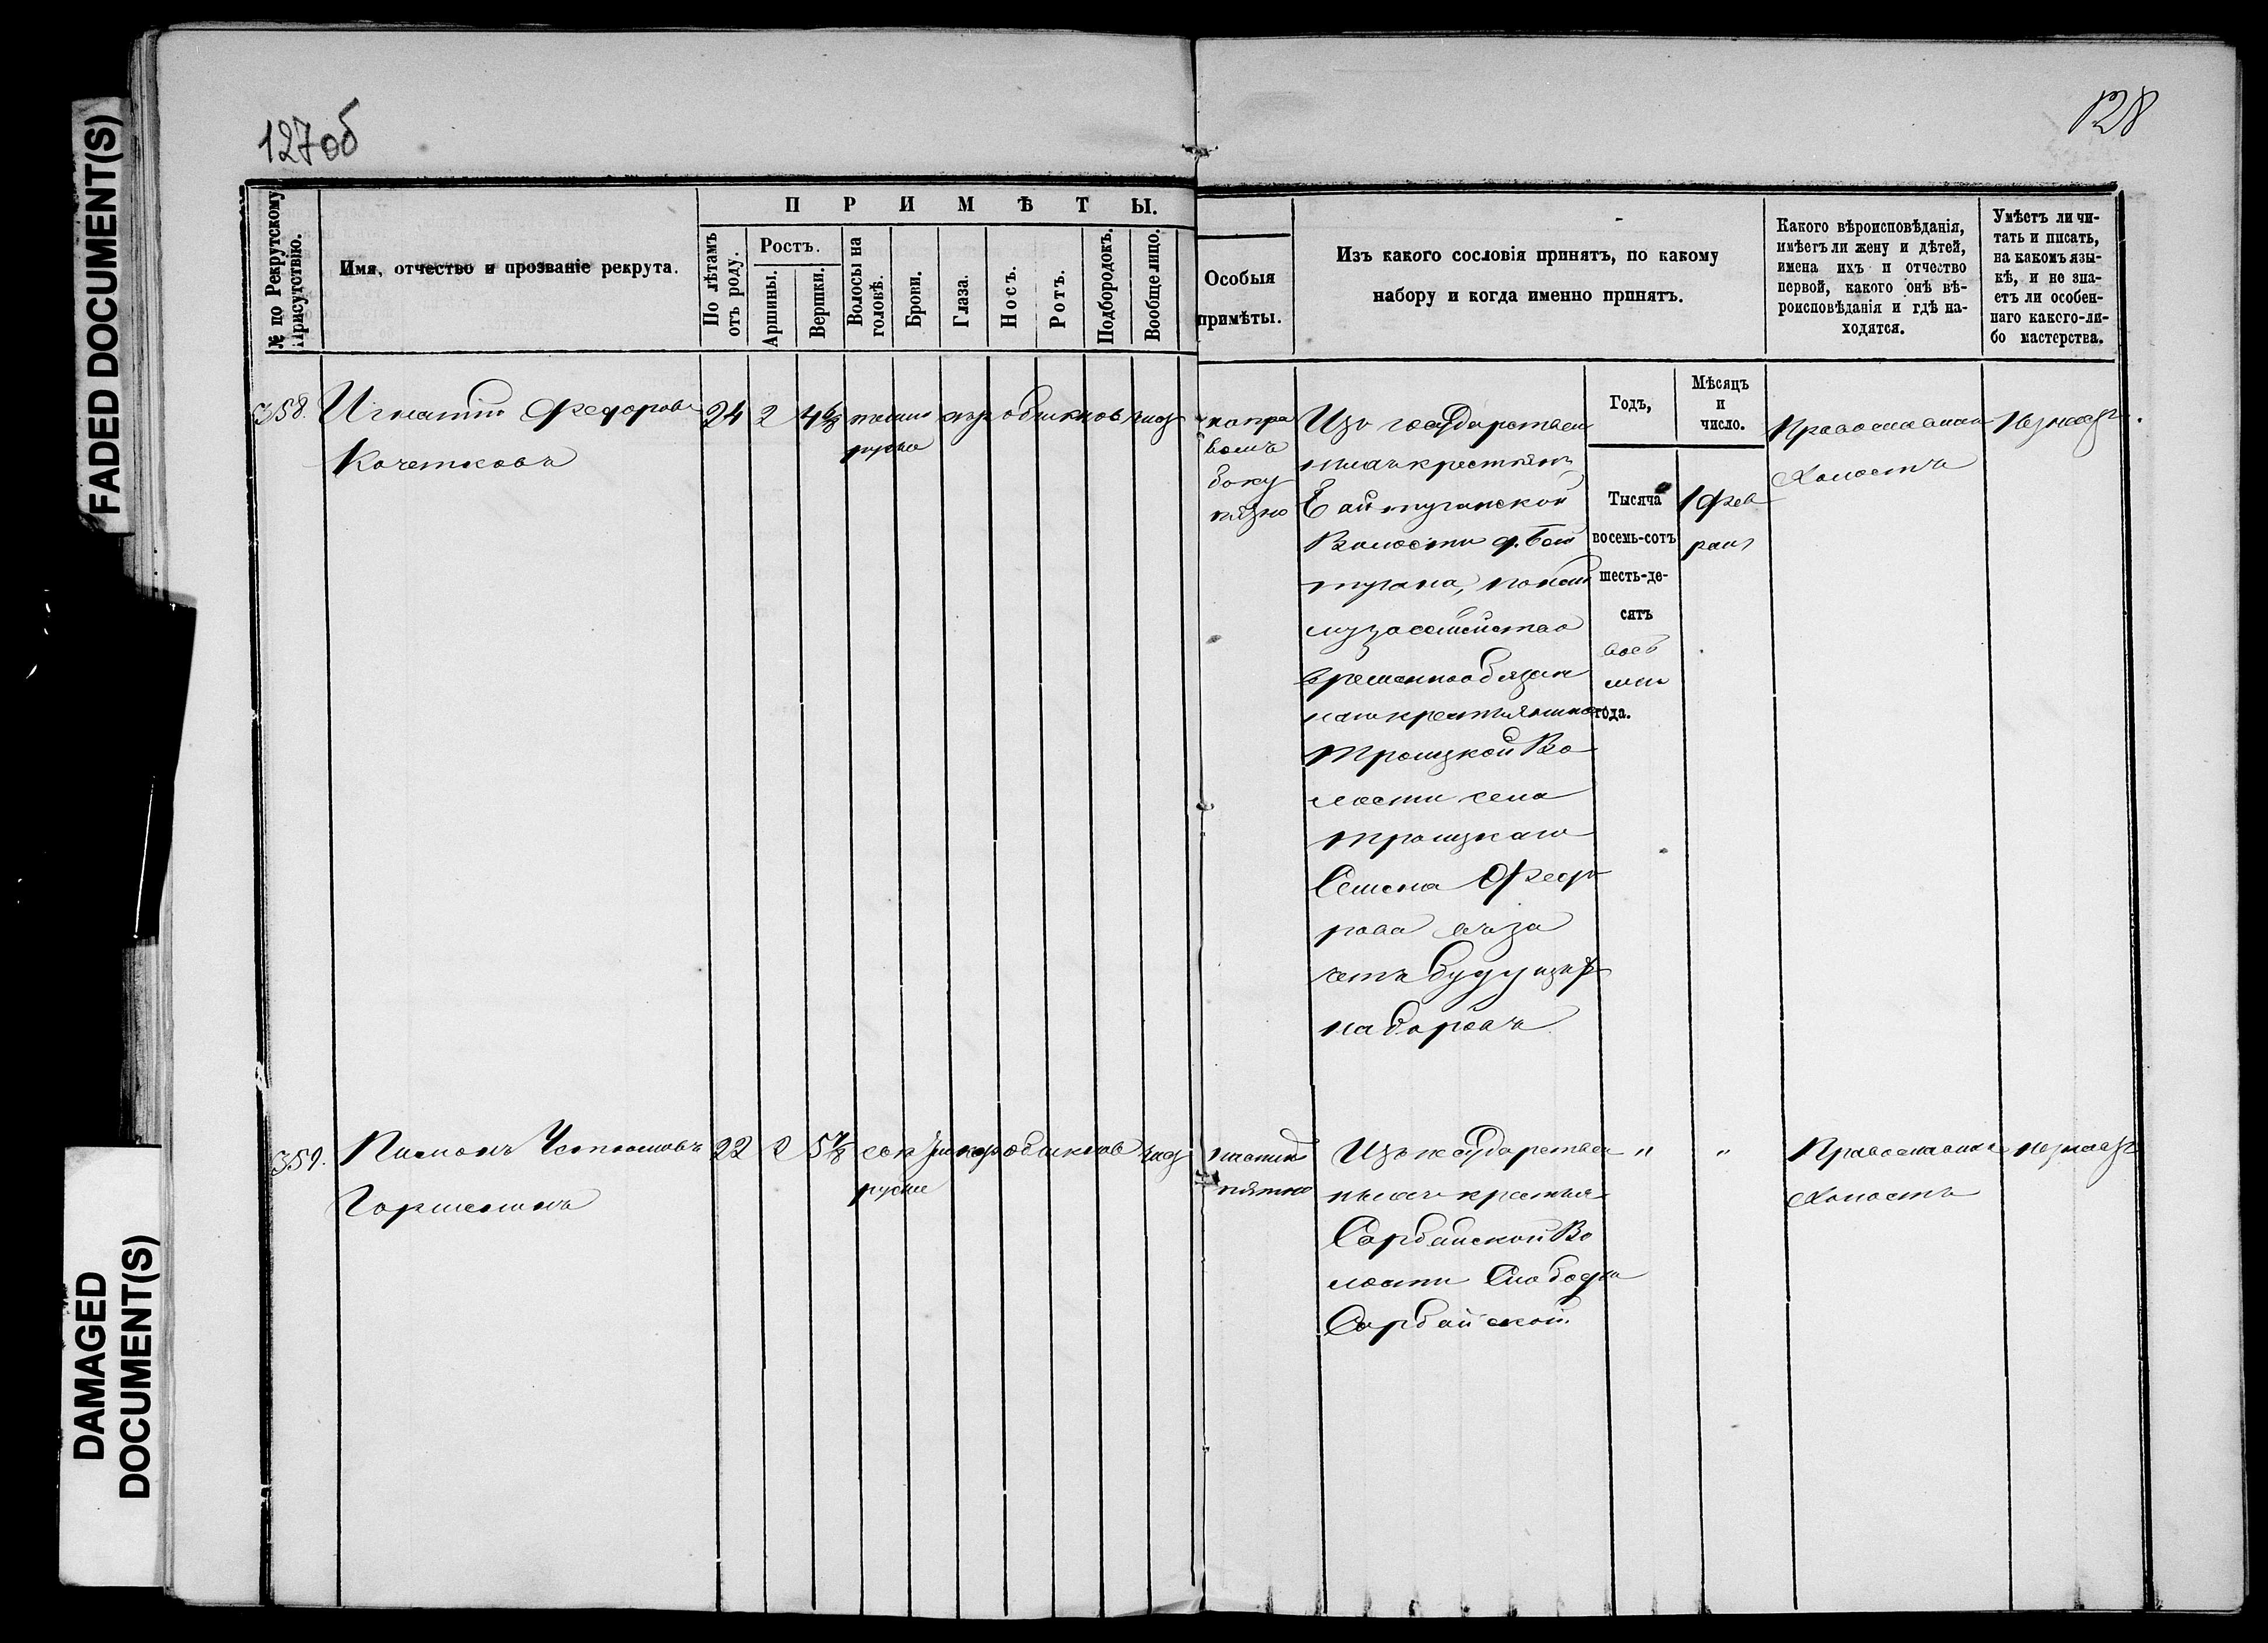 FADED DOCUMENT(S)
DAMAGED
DOCUMENT(S)
127об
128
№ по Рекрутскому
Присутствію.
Имя, отчество и прозваніе рекрута.
ПРИМѢТЫ.
По лѣтамъ
отъ роду.
Ростъ.
Аршины.
Вершки.
Волосы на
головѣ.
Брови.
Глаза.
Носъ.
Ротъ.
Подбородокъ.
Вообще лицо.
Особыя
примѣты.
Изъ какого сословія принятъ, по какому
набору и когда именно принятъ.
Какого вѣроисповѣданія,
имѣетъ ли жену и дѣтей,
имена ихъ и отчество
первой, какого онѣ вѣ-
роисповѣданія и гдѣ на-
ходятся.
Умѣетъ ли чи-
тать и писать,
на какомъ язы-
кѣ, и не зна-
етъ ли особен-
наго какого-ли-
бо мастерства.
Годъ,
Мѣсяцъ
и
число.
358.
Игнатій Федоровъ
Кочетковъ
24
2
4 6/8
темно
русые
сѣр
обыкнов
чист
на пра
вомъ
боку
пятно
Изъ государствен
ныхъ крестьянъ
Байтуганской
Волости д. Бай
тугана, понаи
му за семейство
временнообязан
наго крестьянина
Троицкой Во
лости села
Троицкаго
Семена Федо
рова въ за
четъ будущих
наборовъ
Тысяча
восемь-сотъ
шесть-де-
сятъ
вось
ми
года.
1 Фев
рал
Православнаго
Холостъ
Незнаетъ.
359.
Устиновъ
Горшенинъ
22
2
5 7/8
русые
обыкнов
чист
пятно
Изъ государствен
ныхъ крестьян
Сарбайской Во
лости Слободы
Сарбайской.
"
"
Православнаго
Холостъ
незнаетъ